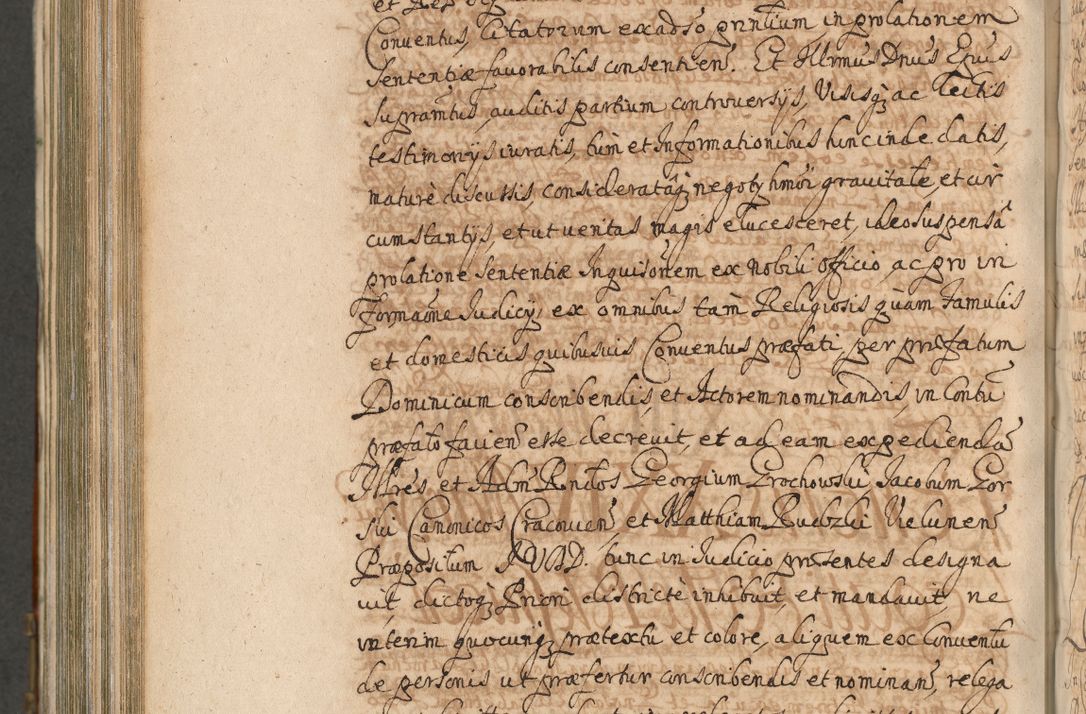 et Rev
Conventus, citatorum ex adso prntium, in prolationem
Sententiæ favorabilis consentien. Et Illrmus Dnus Epus
Supramtus, auditis partium controversijs, Visisq ac lectis
testimonijs iuratis, tum et Informationibus hinc inde datis,
maturè discussis, consideratáq negotij hmõi gravitate, et cir
cumstantijs, et ut veritas magis elucesceret, ideo suspensâ
prolatione Sententiæ Inquisitionem ex nobili officio ac pro in
formaõne Iudicij, ex omnibus tam Religiosis quam famulis
et domesticis quibusvis Conventus præfati, per præfatum
Dominicum conscribendis, et Actorem nominandis, in Contu
præfato facien esse decrevit, et ad eam expedienda
Illres, et Adm Rndos Georgium Grochowski, Iacobum Gor
ski Canonicos Cracovien et Matthiam Rudzki Vielunen
Præpositum IUD. tunc in Iudicio præsentes designa
vit, dictoq Priori districtè inhibuit, et mandavit, ne
interim quocunq prætextu et colore, aliquem ex Conventu
de personis ut præfertur conscribendis et nominan, relega